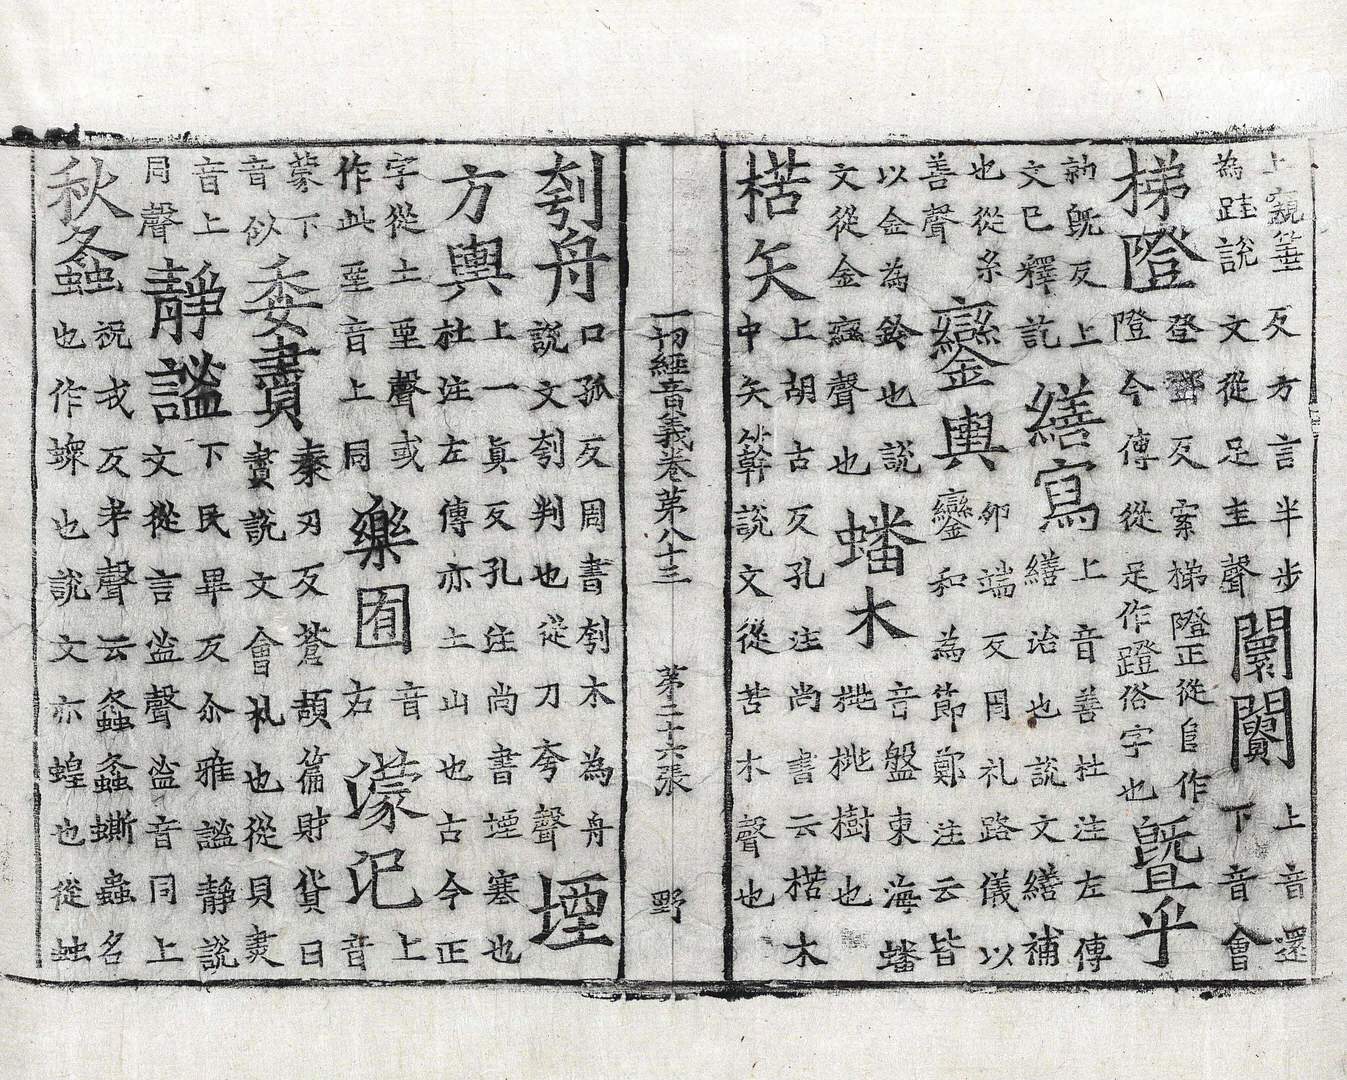 上竊箠反方言半步
為跬說文從足圭聲
闤闠
上音還
下音會
梯隥
登鄧反案梯隥正從𨸏作
隥今傳從足作蹬俗字也
曁乎
訙旣反上
文已釋訖
繕寫
上音善杜注左傳
繕治也說文繕補
也從糸
善聲
鑾輿
卵端反周礼路儀以
鑾和為節鄭注云皆
以金為鈴也說
文從金䜌聲也
蟠木
音盤東海蟠
桃桃樹也
楛矢
上胡古反孔注尚書云楛木
中矢榦說文從苦木聲也
一切經音義卷第八十三 第二十六張 野
刳舟
口孤反周書刳木為舟
說文刳判也從刀夸聲
堙
方輿
上一眞反孔注尚書堙塞也
杜注左傳亦土山也古今正
字從土垔聲或
作此垔音上同
樂囿
音
右
濛汜
上
音
蒙下
音似
委賮
秦刃反蒼頡篇財貨曰
賮說文會礼也從貝㶳
音上
同聲
靜謐
下民畢反尒雅謐靜說
文從言㿽聲㿽音同上
秋螽
祝戎反考聲云螽螽蟴蟲名
也作䗥也說文亦蝗也從䖵